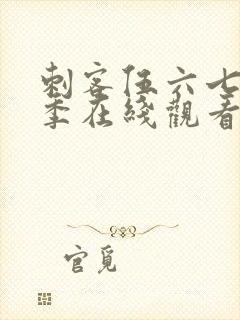 刺客伍六七
季在綫觀看
官覓